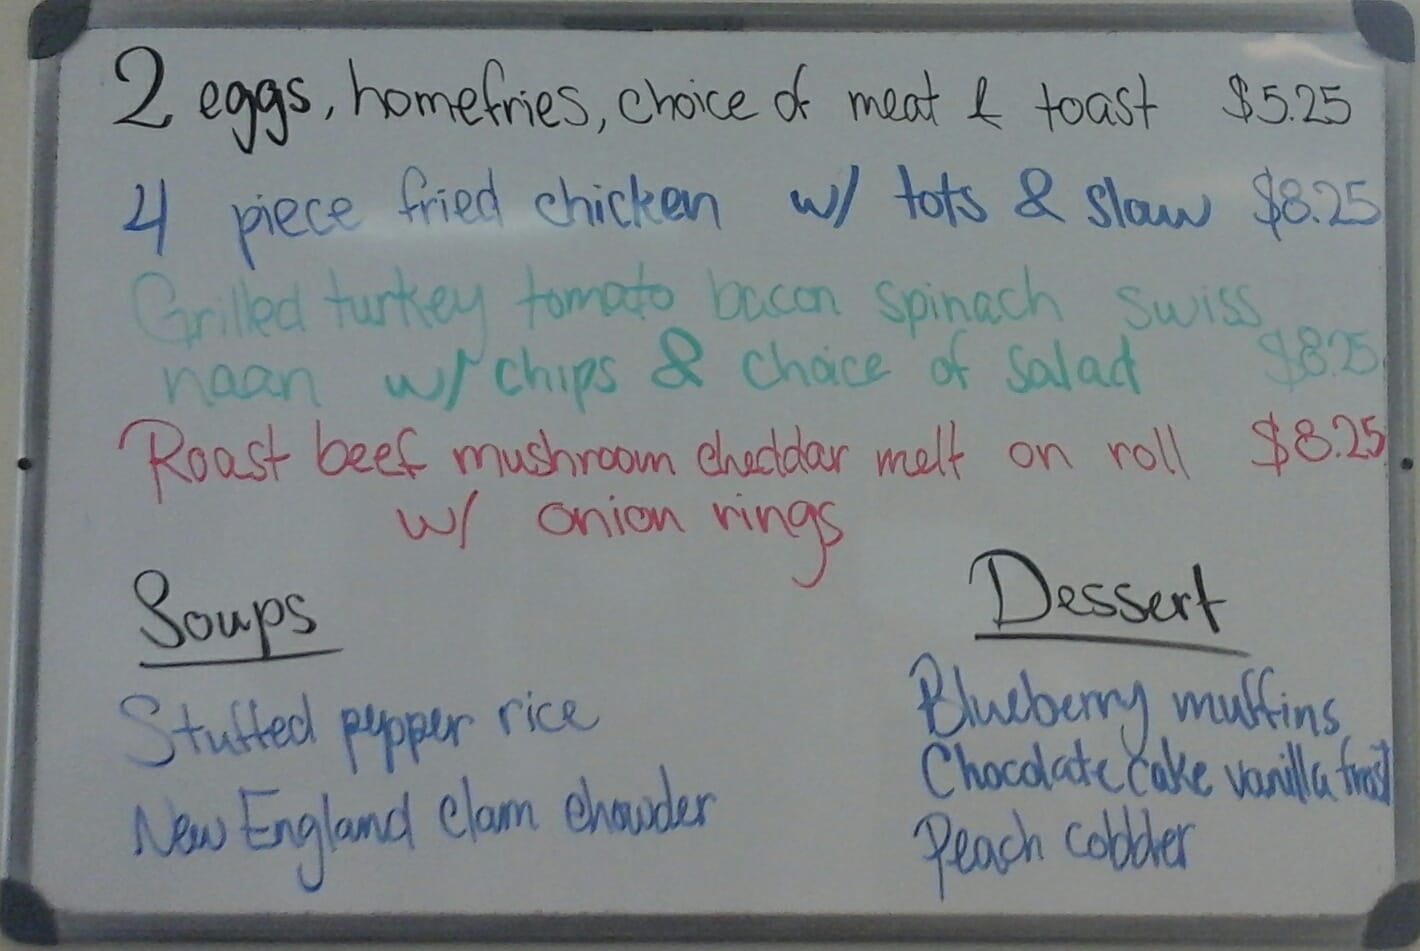 2 eggs, homefries, choice of meat & toast $5.25
4 piece fried chicken w/ tots & slaw $8.25
Grilled turkey tomato bacon spinach swiss
naan w/ chips & choice of salad $8.25
Roast beef mushroom cheddar melt on roll $8.25
w/ onion rings
Soups
Stuffed pepper rice
New England clam chowder
Dessert
Blueberry muffins
Chocolate cake vanilla frost
Peach cobbler